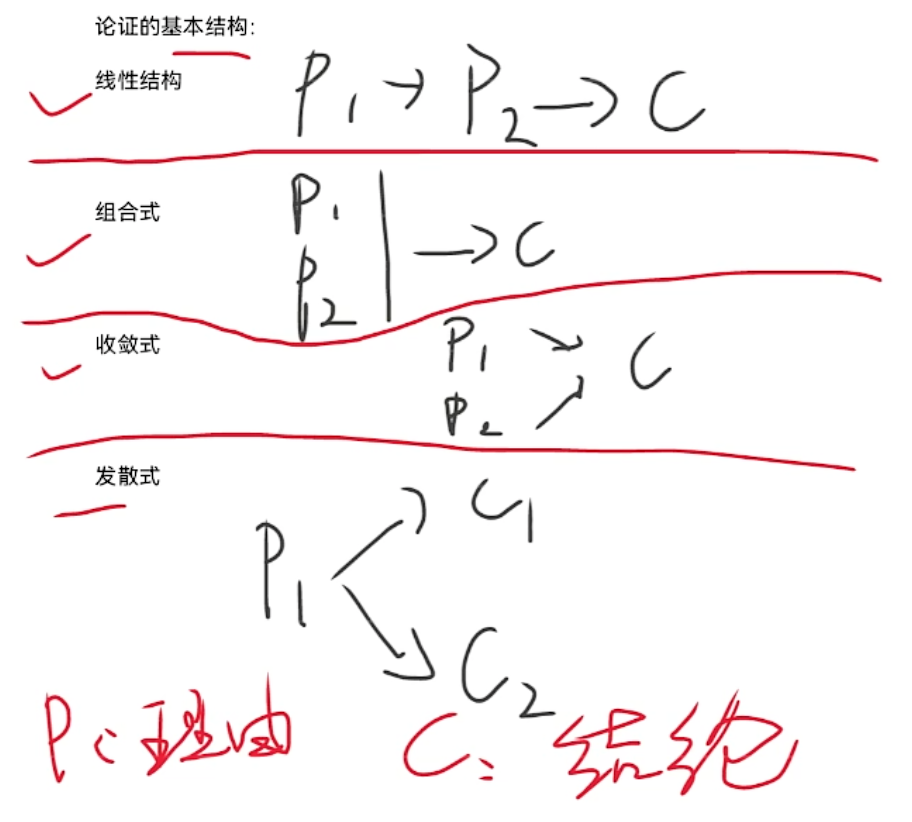 论证的基本结构:
线性结构 P1 → P2 → C
组合式 P1
P2 → C
收敛式 P1 → C
P2
发散式
P1 → C1
C2
P: 理由 C: 结论